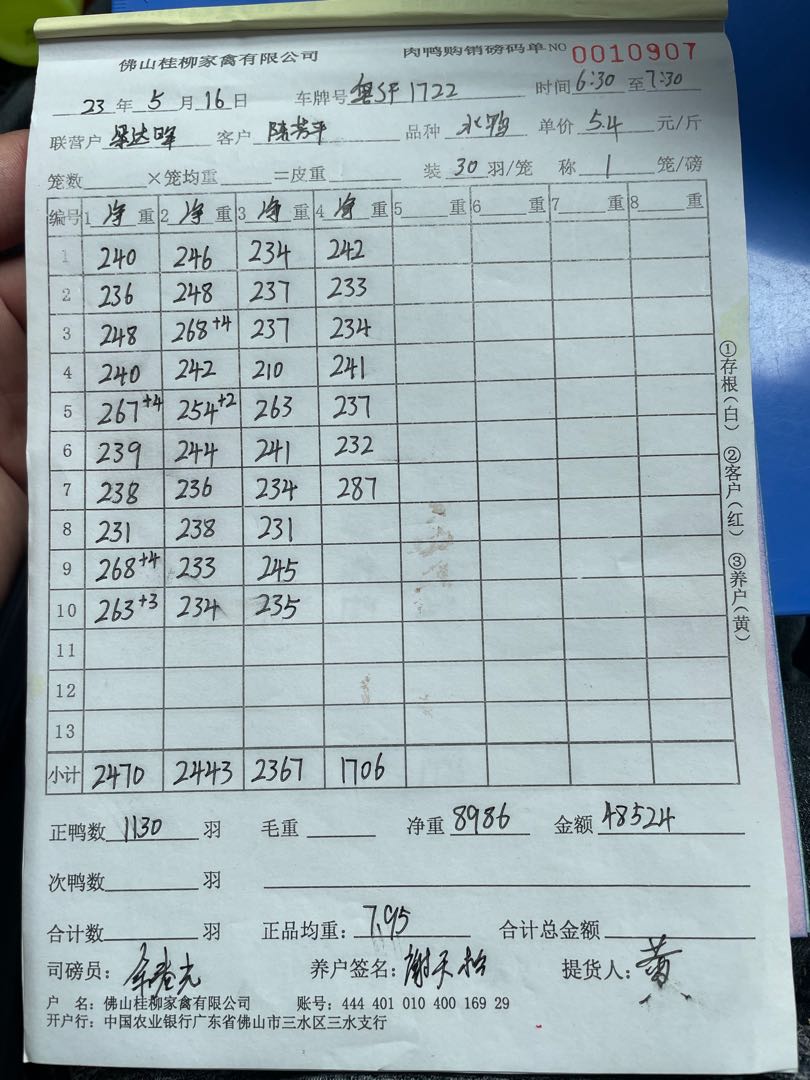 佛山桂柳家禽有限公司 肉鸭购销磅码单 NO 0010907
23 年 5 月 16 日 车牌号 粤SF1722 时间 6:30 至 7:30
联营户 梁达晖 客户 陈芳平 品种 水鸭 单价 5.4 元/斤
笼数 ×笼均重 =皮重 装 30 羽/笼 称 1 笼/磅
编号 1 净 重 2 净 重 3 净 重 4 净 重 5 重 6 重 7 重 8 重
1 240 246 234 242
2 236 248 237 233
3 248 268+4 237 234
4 240 242 210 241
5 267+4 254+2 263 237
6 239 244 241 232
7 238 236 234 287
8 231 238 231
9 268+4 233 245
10 263+3 234 235
11
12
13
小计 2470 2443 2367 1706
正鸭数 1130 羽 毛重 净重 8986 金额 48524
次鸭数 羽
合计数 羽 正品均重: 7.95 合计总金额
司磅员: 养户签名: 谢天松 提货人: 黄
户 名: 佛山桂柳家禽有限公司 账号: 444 401 010 400 169 29
开户行: 中国农业银行广东省佛山市三水区三水支行
①存根(白) ②客户(红) ③养户(黄)